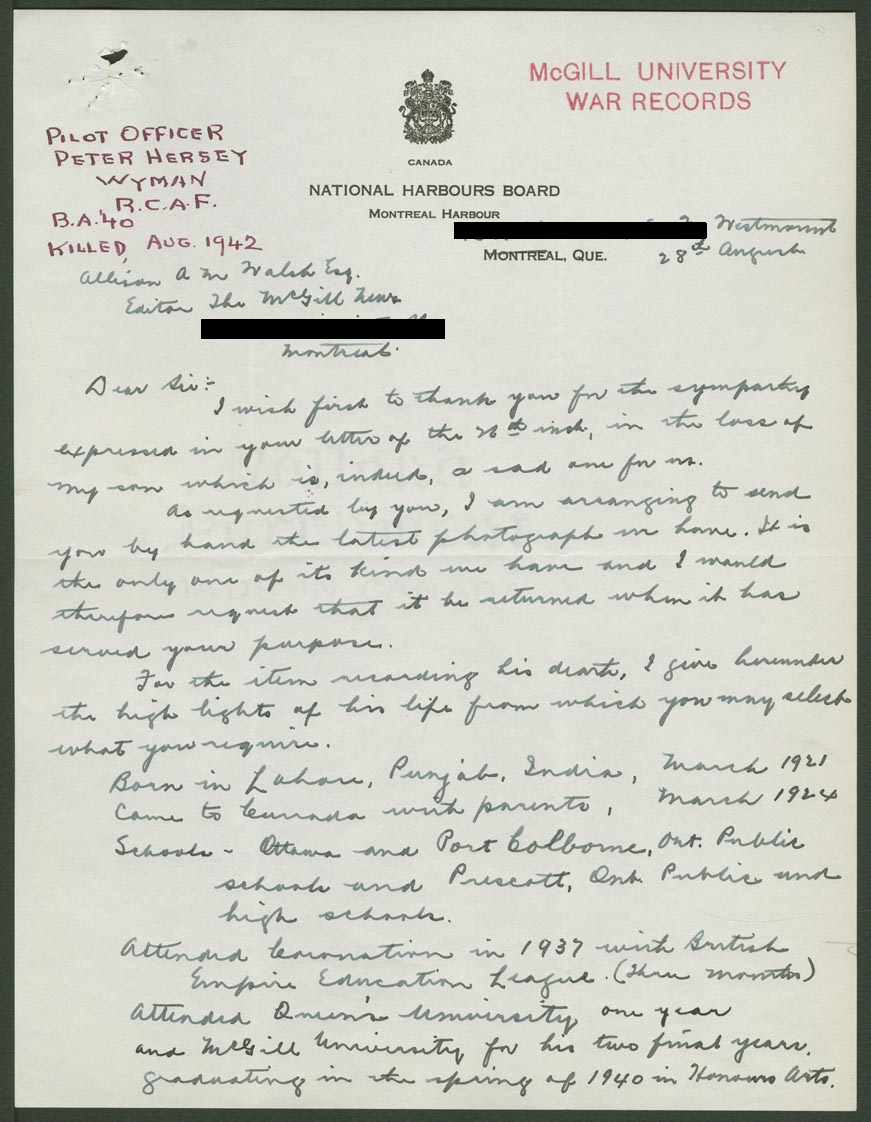 McGILL UNIVERSITY
WAR RECORDS
PILOT OFFICER
PETER HERSEY
WYMAN
R.C.A.F.
B.A.'40
KILLED, AUG. 1942
CANADA
NATIONAL HARBOURS BOARD
MONTREAL HARBOUR
Westmount
MONTREAL, QUE.
28th August
Allison A M Walsh Esq.
Editor The McGill News
Montreal.
Dear Sir:-
I wish first to thank you for the sympathy
expressed in your letter of the 26th inst, in the loss of
my son which is, indeed, a sad one for us.
As requested by you, I am arranging to send
you by hand the latest photograph we have. It is
the only one of its kind we have and I would
therefore request that it be returned when it has
served your purpose.
For the item recording his death, I give hereunder
the high lights of his life from which you may select
what you require.
Born in Lahore, Punjab, India, March 1921
Came to Canada with parents, March 1924
Schools - Ottawa and Port Colborne, Ont. Public
schools and Prescott, Ont. Public and
high schools.
Attended Coronation in 1937 with British
Empire Education League. (Three months)
Attended Queen's University one year
and McGill University for his two final years,
graduating in the spring of 1940 in Honours Arts.